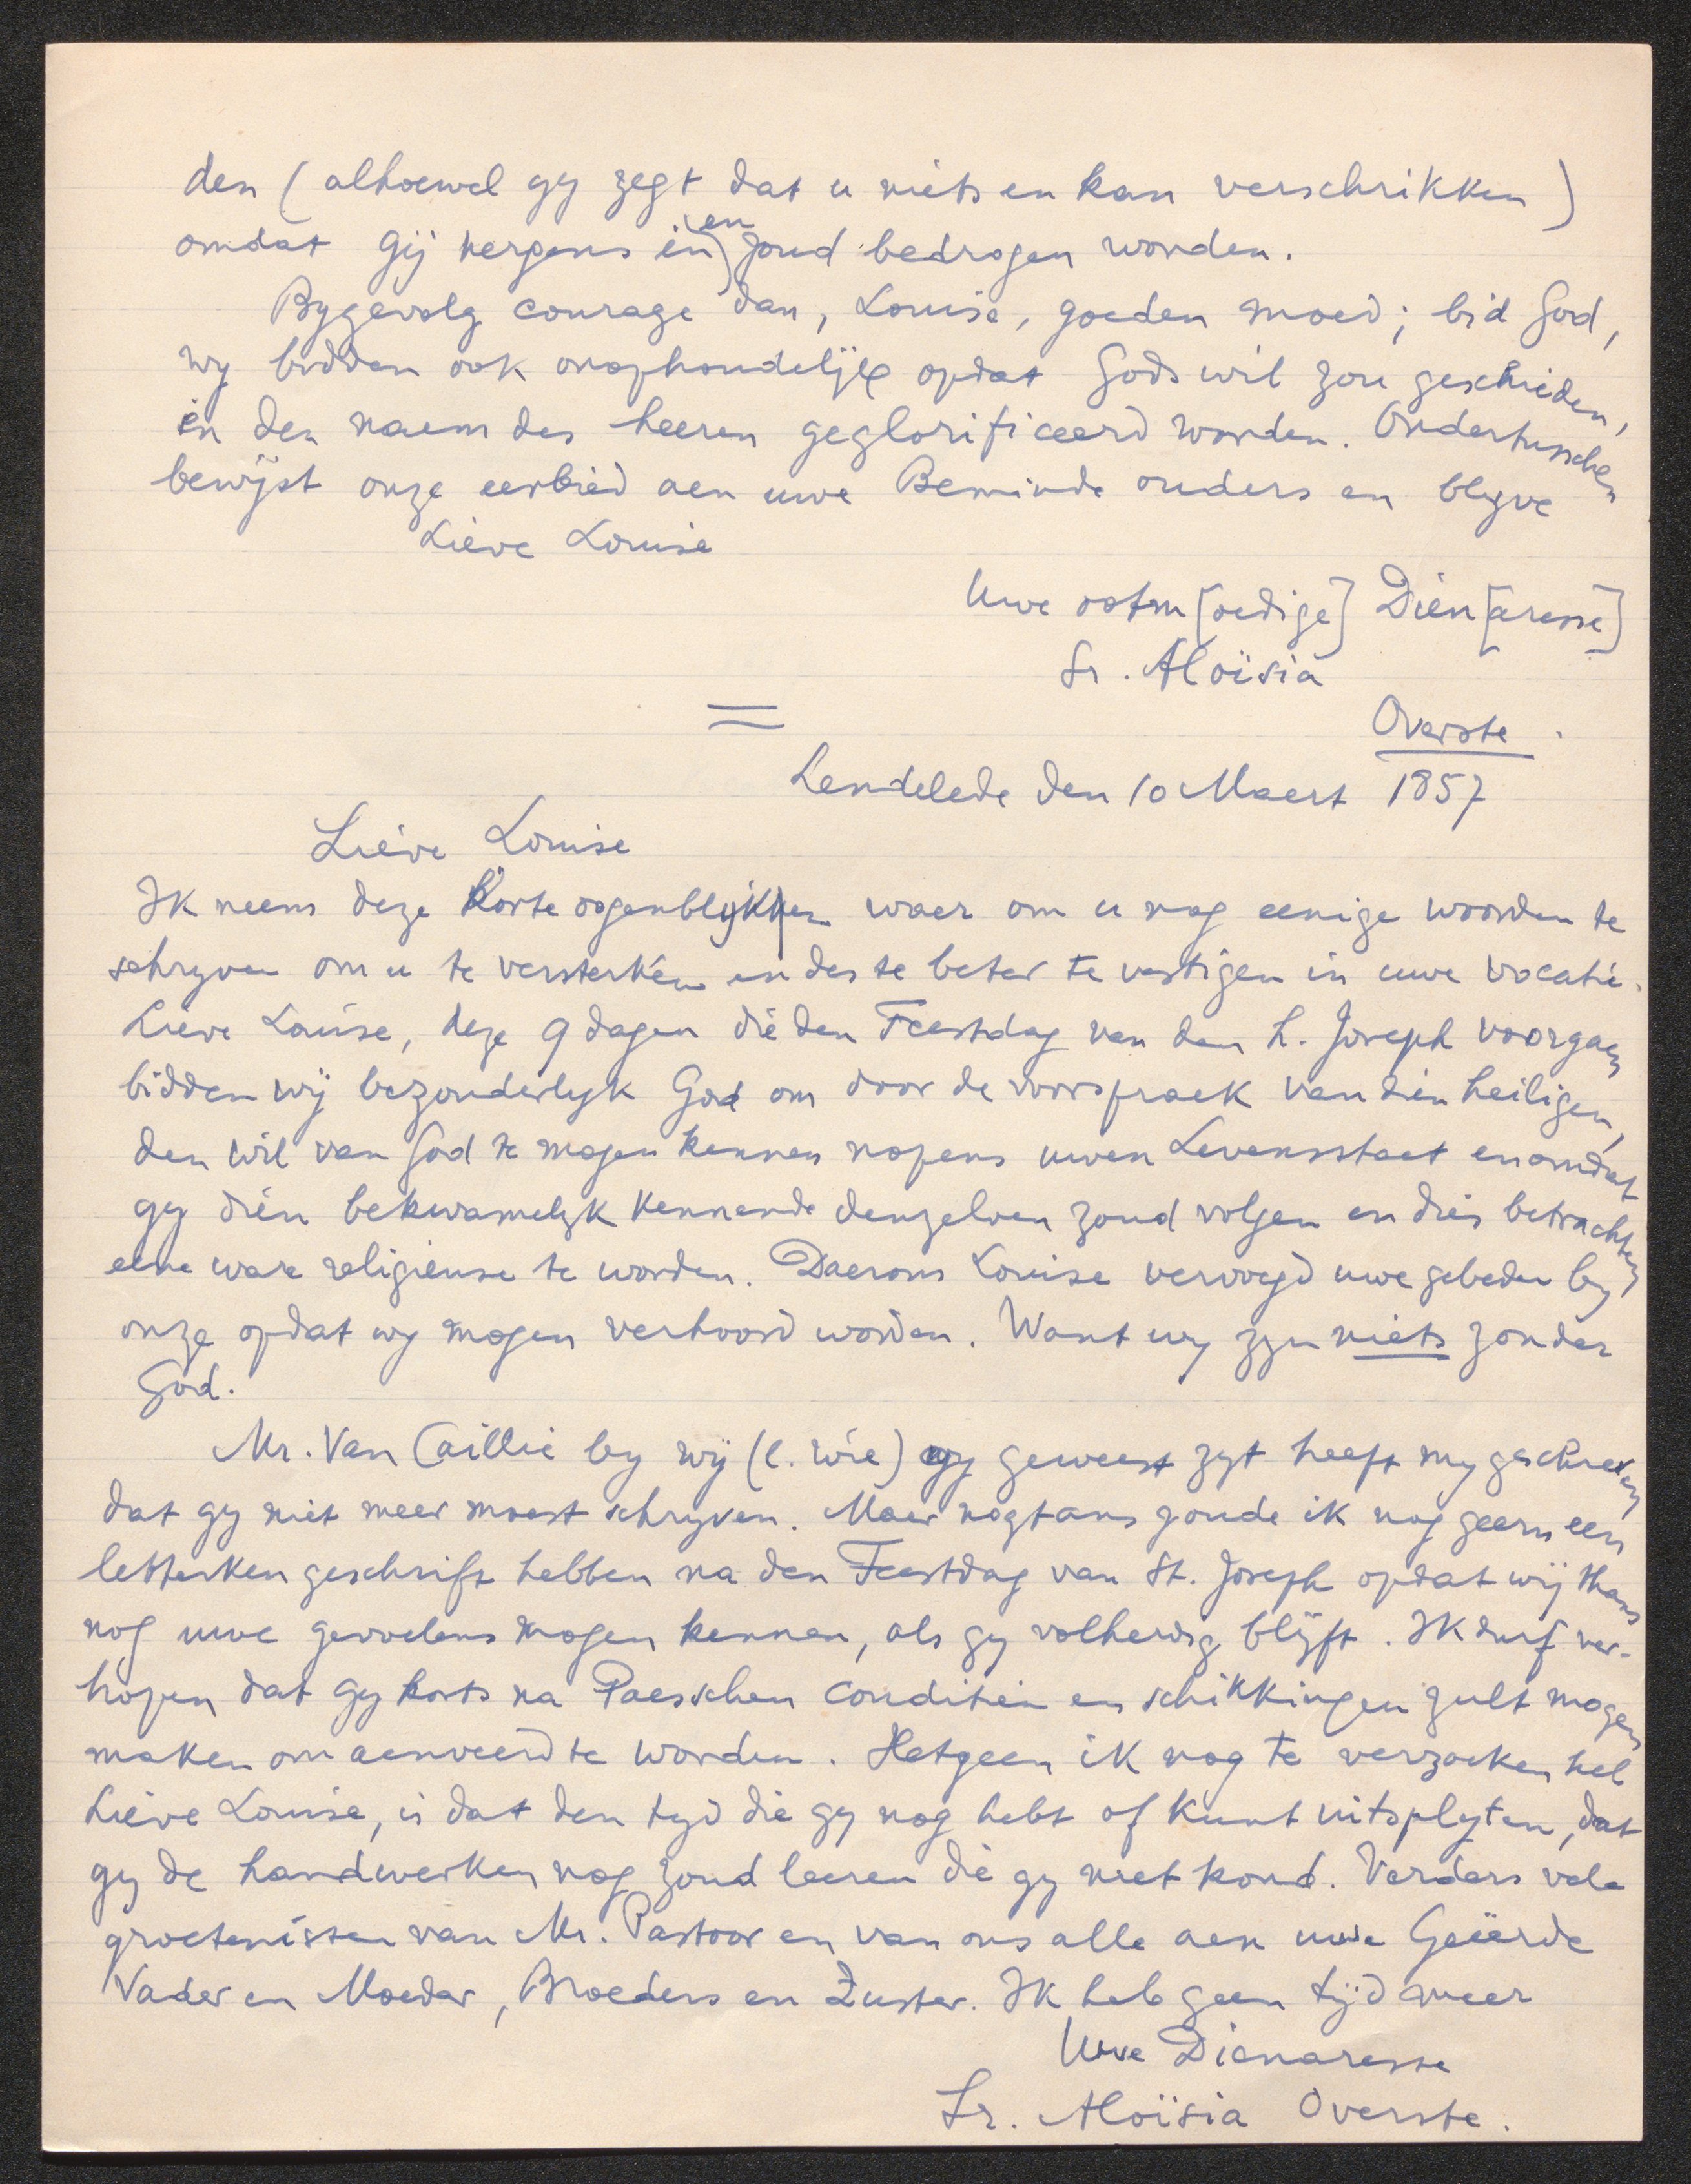 den (alhoewel gy zegt dat u niets en kan verschrikken)
omdat gij nergens in en zoud bedrogen worden.
Bygevolg courage dan, Louise, goeden moed; bid God,
wy bidden ook onophoudelijk opdat Gods wil zou geschieden,
en den naem des heeren geglorificeerd worden. Ondertusschen
bewijst onze eerbied aen uwe Beminde ouders en blyve
Lieve Louise
Uwe ootm[oedige] Dien[aresse]
Sr. Aloïsia
Overste.
=
Lendelede den 10 Maert 1857
Lieve Louise
Ik neem deze korte oogenblykken waer om u nog eenige woorden te
schryven om u te versterken en des te beter te vestigen in uwe vocatie.
Lieve Louise, deze 9 dagen die den Feestdag van den H. Joseph voorgaen
bidden wij bezonderlyk God om door de voorspraek van dien heiligen,
den wil van God te mogen kennen nopens uwen Levensstaet en omdat
gy dien bekwamelyk kennende denzelven zoud volgen en dies betrachten
eene ware religieuse te worden. Daerom Louise vervoegd uwe gebeden by
onze opdat wy mogen verhoord worden. Want wy zyn niets zonder
God.
Mr. Van Caillie by wij (l. wie) gy geweest zyt heeft my geschreven
dat gy niet meer moest schryven. Maer nogtans zoude ik nog geern een
letterken geschrift hebben na den Feestdag van St. Joseph opdat wij thans
nog uwe gevoelens mogen kennen, als gy volherdig blijft. Ik durf ver-
hopen dat gy korts na Paesschen conditien en schikkingen zult mogen
maken om aenveerd te worden. Hetgeen ik nog te verzoeken heb
Lieve Louise, is dat den tyd die gy nog hebt of kunt uitsplyten, dat
gy de handwerken nog zoud leeren die gy niet kond. Verders vele
groetenissen van Mr. Pastoor en van ons alle aen uwe Geëerde
Vader en Moeder, Broeders en Zuster. Ik heb geen tijd meer
Uwe Dienaresse
Sr. Aloïsia Overste.